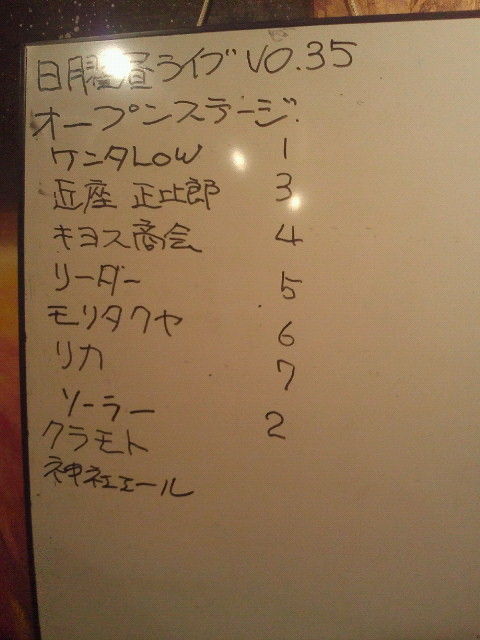 日曜昼ライブ VO.35
オープンステージ.
ケンタLOW 1
近座 正比郎 3
キヨス商会 4
リーダー 5
モリタクヤ 6
リカ 7
ソーラー 2
クラモト
神社エール